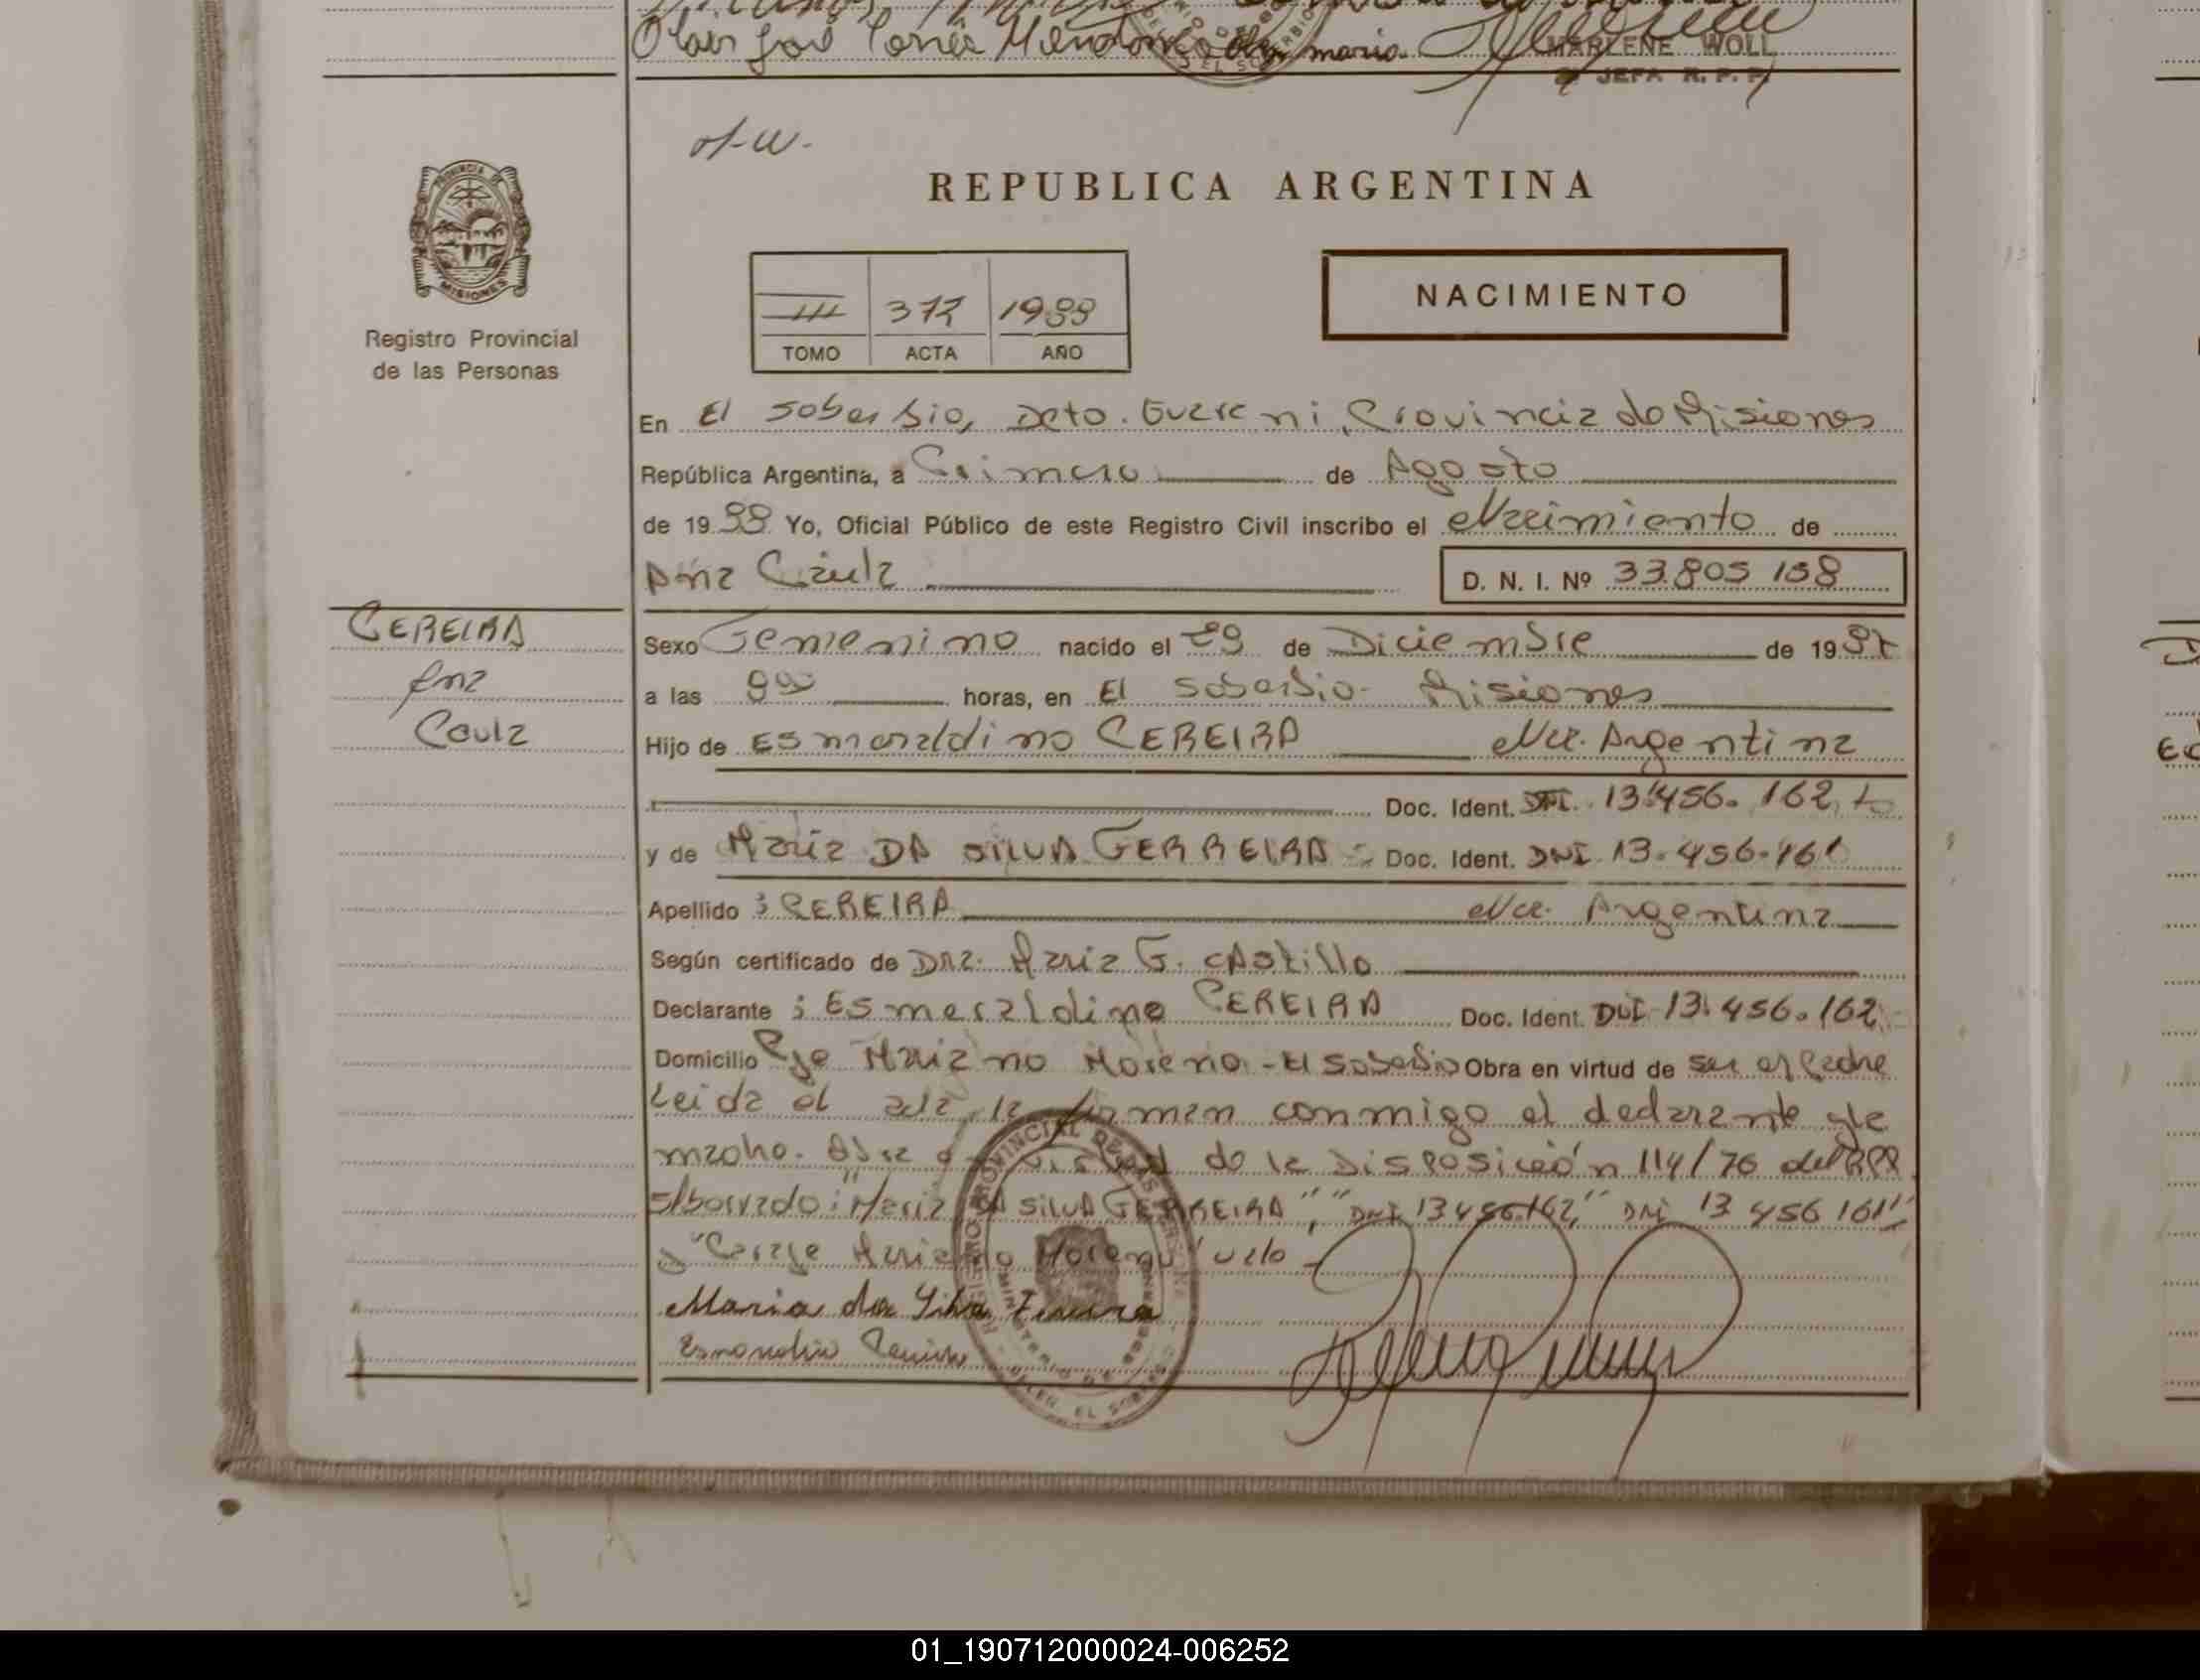 Olair José
maria
MARLENE WOLL
JEFA R. P. P.
REPUBLICA ARGENTINA
PROVINCIA DE
MISIONES
Registro Provincial
de las Personas
NACIMIENTO
III 377 1988
TOMO ACTA AÑO
En El Soberbio, Dcto. Guarani, Provincia de Misiones
República Argentina, a Primero de Agosto
de 1988 Yo, Oficial Público de este Registro Civil inscribo el Nacimiento de
Ana Paula D. N. I. Nº 33.805 158
PEREIRA
Ana
Paula
Sexo Femenino nacido el 29 de Diciembre de 1987
a las 9 horas, en El Soberbio - Misiones
Hijo de Esmeraldino PEREIRA Nac. Argentina
Doc. Ident. DNI. 13.456.162
y de Maria DA SILVA FERREIRA Doc. Ident. DNI 13.456.161
Apellido : PEREIRA Nac. Argentina
Según certificado de Dra. Maria G. Castillo
Declarante : Esmeraldino PEREIRA Doc. Ident. DNI 13.456.162
Domicilio Pje Mariano Moreno - El Soberbio Obra en virtud de ser el Padre
Leida el acta, la firman conmigo el declarante y la
madre. Obra en virtud de la Disposición 114/76 del RPP
S/borrado: "Maria DA SILVA FERREIRA", "DNI 13456162," DNI 13 456 161"
y "Pasaje Mariano Moreno" vale
Maria da Silva Ferreira
01_190712000024-006252